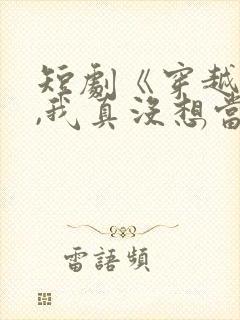 短劇《穿越
,我真沒想當
雷語頻